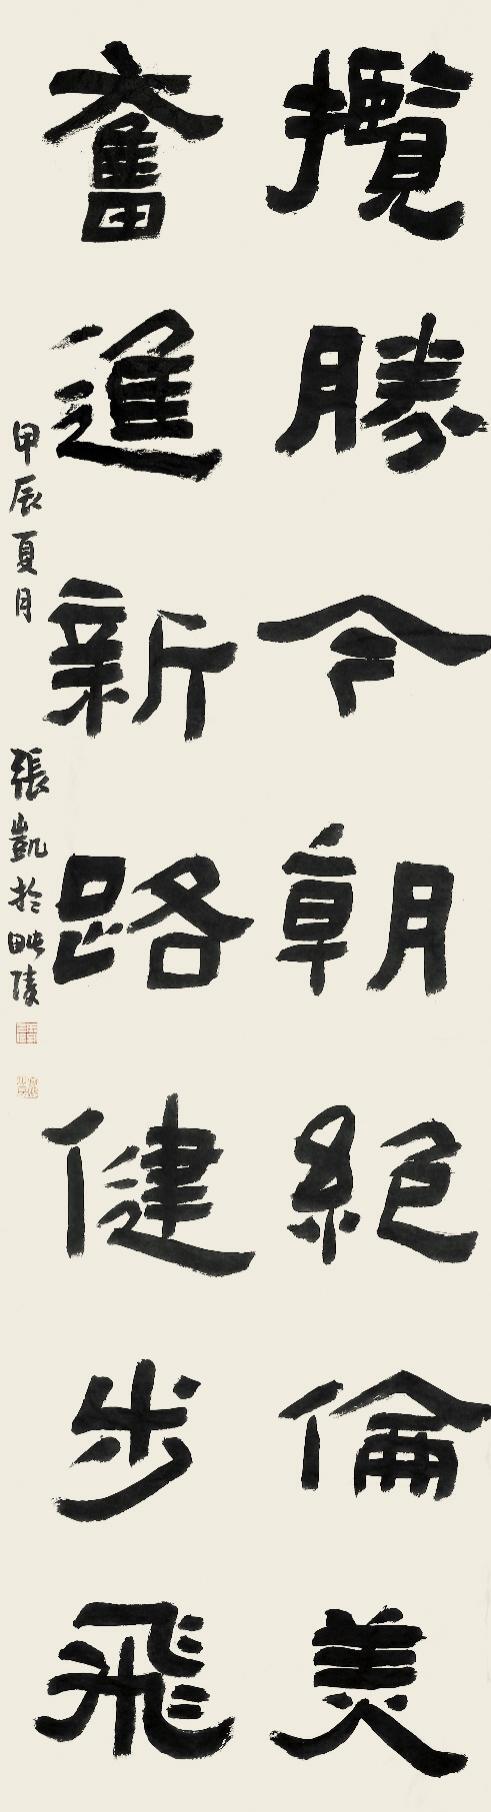 攬勝今朝絕倫美
奮進新路健步飛
甲辰夏月 張凱於映陵